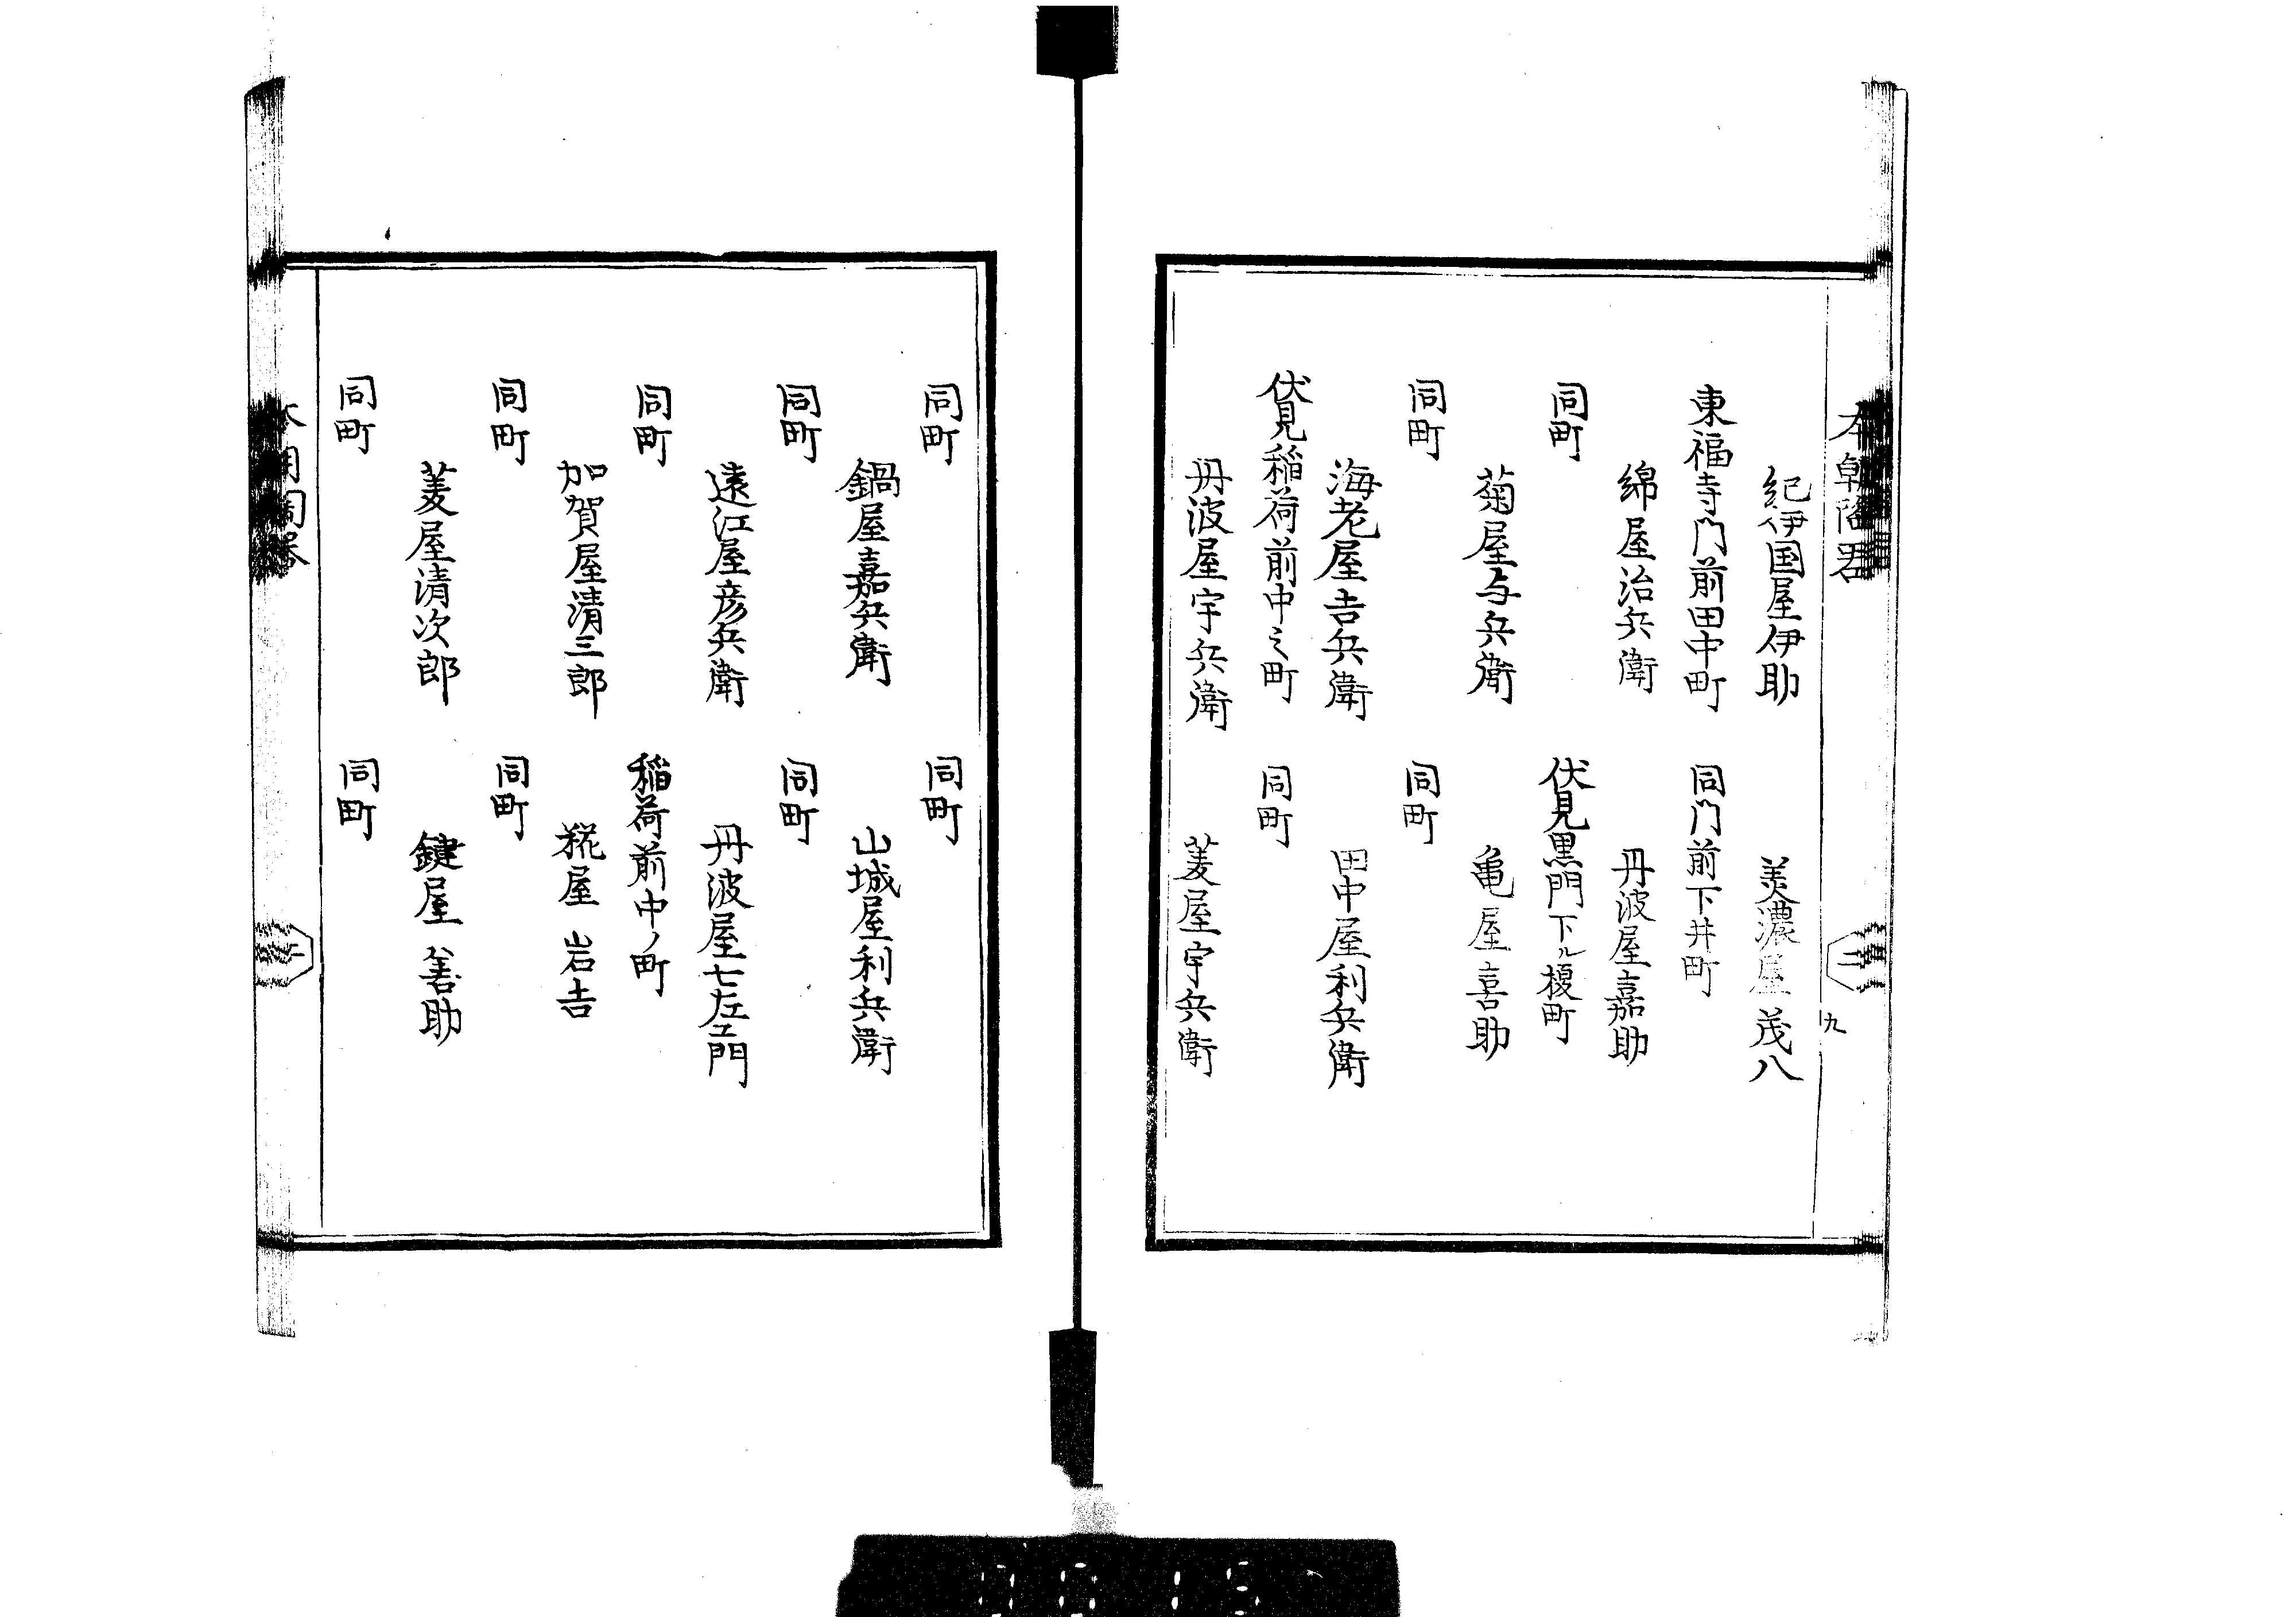 紀伊国屋伊助
美濃屋茂八
東福寺門前田中町
同門前下井町
綿屋治兵衛
丹波屋嘉助
同町
伏見黒門下ル榎町
菊屋与兵衛
亀屋喜助
同町
同町
海老屋吉兵衛
田中屋利兵衛
伏見稲荷前中之町
同町
丹波屋宇兵衛
菱屋宇兵衛
九
同町
同町
鍋屋嘉兵衛
山城屋利兵衛
同町
同町
遠江屋彦兵衛
丹波屋七左衛門
同町
稲荷前中ノ町
加賀屋清三郎
糀屋岩吉
同町
同町
菱屋清次郎
鍵屋善助
同町
同町